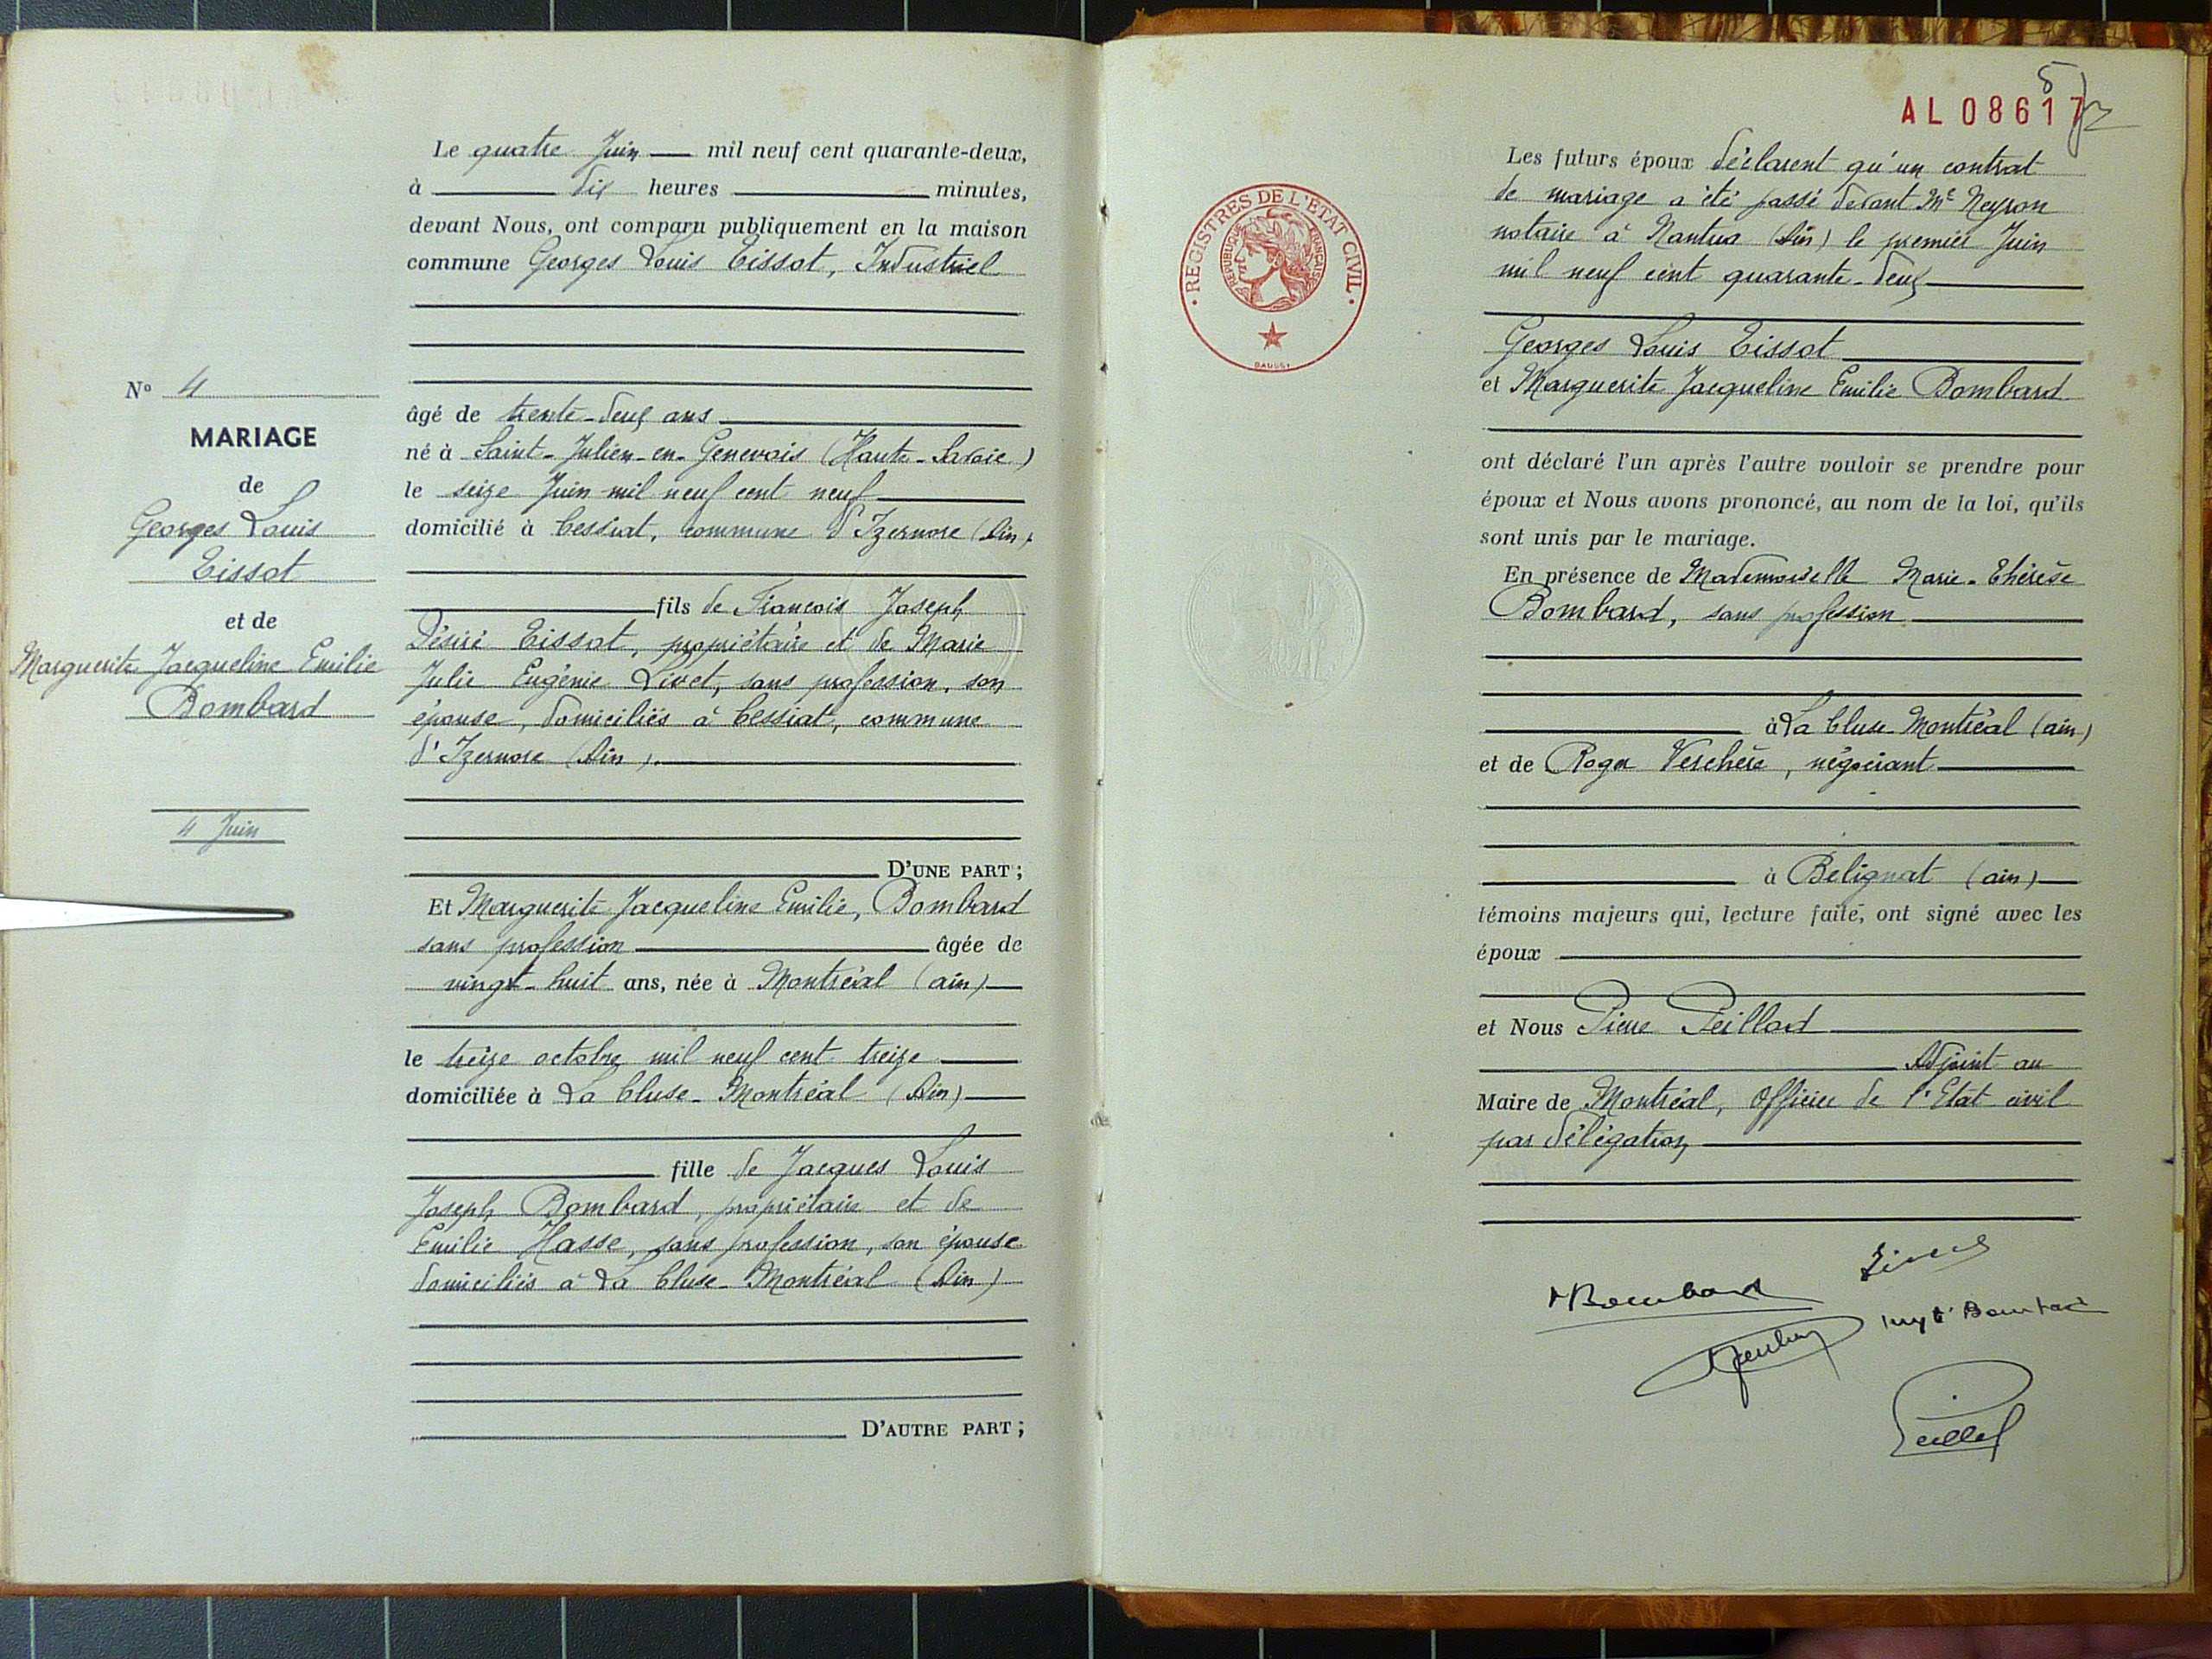 AL 08617
5
Le quatre Juin mil neuf cent quarante-deux,
à dix heures minutes,
devant Nous, ont comparu publiquement en la maison
commune Georges Louis Tissot, Industriel
âgé de trente-deux ans
né à Saint-Julien-en-Genevois (Haute-Savoie)
le seize Juin mil neuf cent neuf
domicilié à Cessiat, commune d'Izernore (Ain).
fils de François Joseph
Désiré Tissot, propriétaire et de Marie
Julie Eugénie Livet, sans profession, son
épouse, domiciliés à Cessiat, commune
d'Izernore (Ain).
D'UNE PART ;
Et Marguerite Jacqueline Emilie, Bombard
sans profession âgée de
vingt-huit ans, née à Montréal (ain)
le treize octobre mil neuf cent treize
domiciliée à La Cluse-Montréal (Ain)
fille de Jacques Louis
Joseph Bombard, propriétaire et de
Emilie Hasse, sans profession, son épouse
domiciliés à La Cluse-Montréal (Ain)
D'AUTRE PART ;
N° 4
MARIAGE
de
Georges Louis
Tissot
et de
Marguerite Jacqueline Emilie
Bombard
4 Juin
REGISTRES DE L'ETAT CIVIL
REPUBLIQUE FRANÇAISE
Les futurs époux déclarent qu'un contrat
de mariage a été passé devant Me Neyron
notaire à Nantua (Ain) le premier Juin
mil neuf cent quarante-deux
Georges Louis Tissot
et Marguerite Jacqueline Emilie Bombard
ont déclaré l'un après l'autre vouloir se prendre pour
époux et Nous avons prononcé, au nom de la loi, qu'ils
sont unis par le mariage.
En présence de Mademoiselle Marie-Thérèse
Bombard, sans profession
à La Cluse-Montréal (ain)
et de Roger Verchère, négociant
à Belignat (ain)
témoins majeurs qui, lecture faite, ont signé avec les
époux
et Nous Pierre Peillod
Adjoint au
Maire de Montréal, Officier de l'Etat civil
par délégation
Bombard
Bombard
Peillod